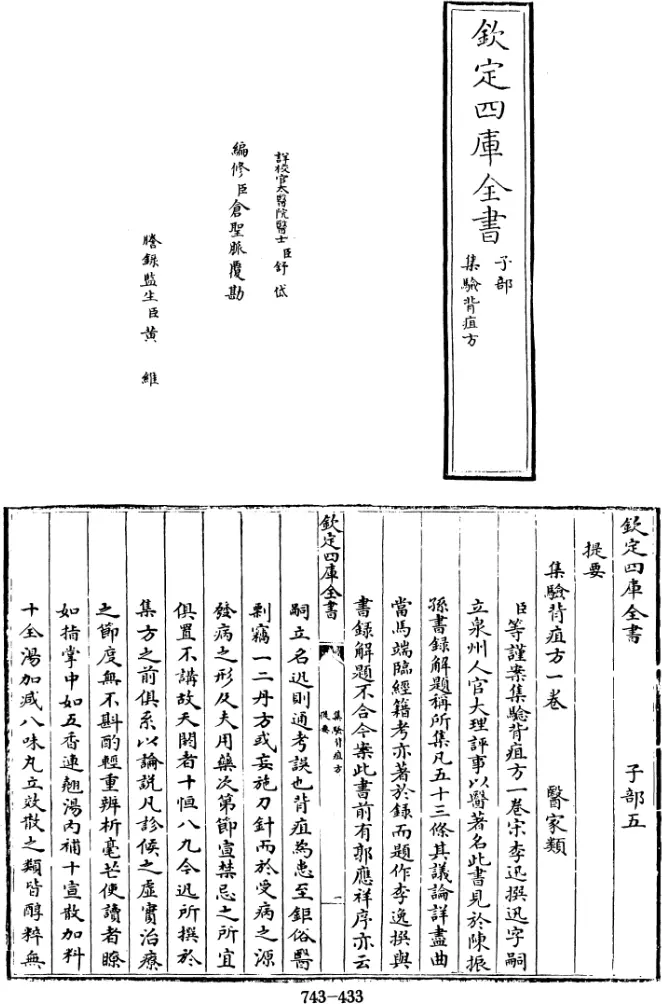 欽定四庫全書
子部
集驗背疽方
詳校官太醫院醫士臣舒岱
編修臣倉聖脈覆勘
謄錄監生臣黃維
欽定四庫全書 子部五
提要
集驗背疽方一卷 醫家類
臣等謹案集驗背疽方一卷宋李迅撰迅字嗣
立泉州人官大理評事以醫著名此書見於陳振
孫書録解題稱所集凡五十三條其議論詳盡曲
當馬端臨經籍考亦著於録而題作李逸撰與
書録解題不合今案此書前有郭應祥序亦云
欽定四庫全書
集驗背疽方
提要
一
嗣立名迅則通考誤也背疽為患至鉅俗醫
剽竊一二丹方或妄施刀針而於受病之源
發病之形及夫用藥次第節宣禁忌之所宜
俱置不講故夭閼者十恒八九今迅所撰於
集方之前俱系以論說凡診候之虛實治療
之節度無不斟酌輕重辨析毫芒使讀者瞭
如指掌中如五香連翹湯內補十宣散加料
十全湯加减八味丸立效散之類皆醇粹無
743-433